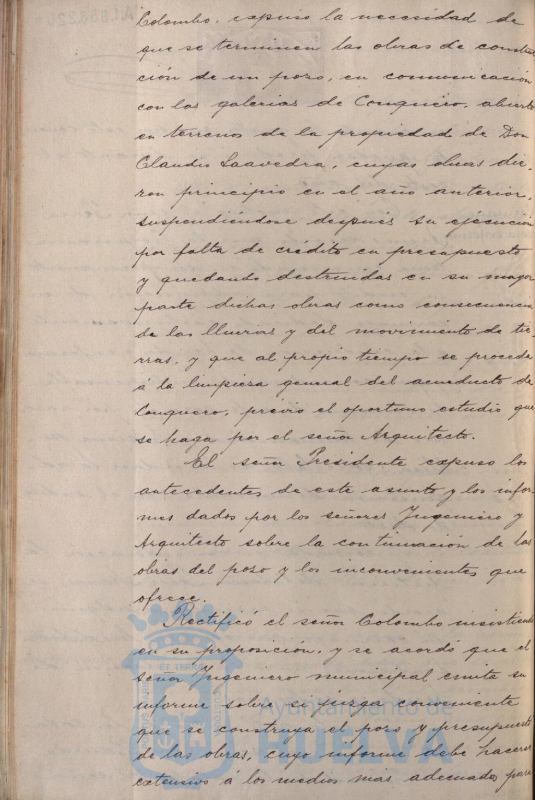 Colombo, expuso la necesidad de
que se terminen las obras de construc
ción de un pozo, en comunicación
con las galerias de Conquero, abierto
en terrenos de la propiedad de Don
Claudio Saavedra, cuyas obras die-
ron principio en el año anterior,
suspendiéndose después su ejecución
por falta de crédito en presupuesto
y quedando destruidas en su mayor
parte dichas obras como consecuencia
de las lluvias y del movimiento de tie-
rras, y que al propio tiempo se proceda
á la limpiesa general del acueducto de
Conquero, prévio el oportuno estudio que
se haga por el señor Arquitecto.
El señor Presidente expuso los
antecedentes de este asunto y los infor-
mes dados por los señores Yngeniero y
Arquitecto sobre la continuación de las
obras del poso y los inconvenientes que
ofrece.
Rectificó el señor Colombo insistiendo
en su proposición, y se acordó que el
señor Yngeniero municipal emita su
informe sobre si juzga conveniente
que se construya el pozo y presupuesto
de las obras, cuyo informe debe hacerse
extensivo á los medios mas adecuados para
Ayuntamiento de
HUELVA